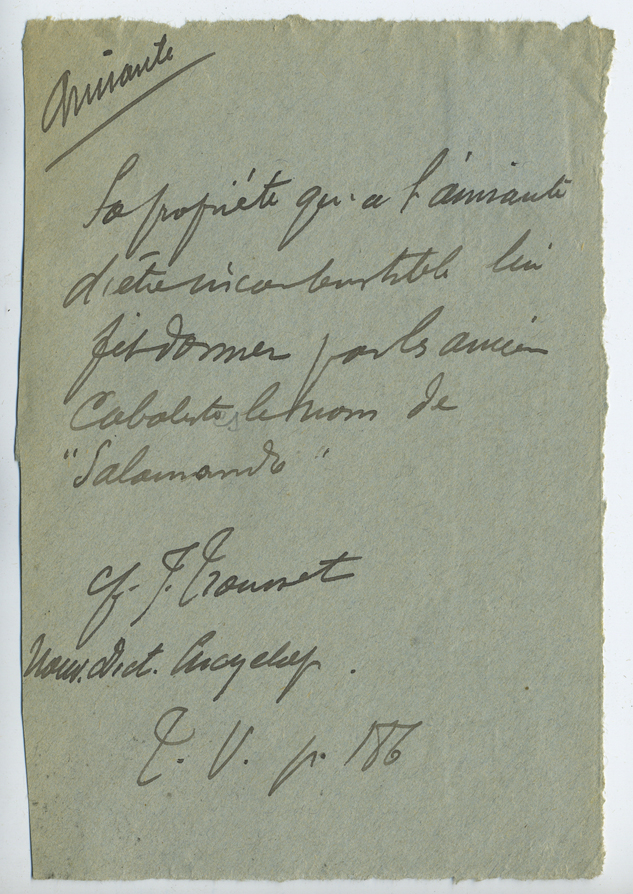 Amiante
La propriété qu'a l'amiante
d'être incombustible lui
fit donner par les anciens
Cabalistes le nom de
"Salamandre"
cf. J. Trousset
Nouv. Dict. Encyclop.
T. V. p. 186